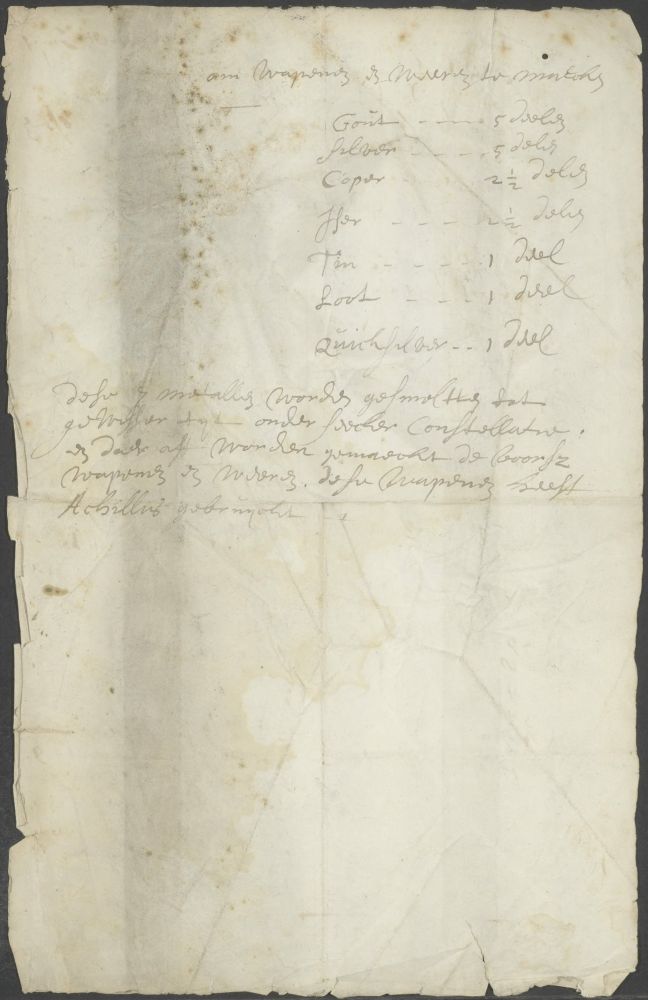 om wapenen en weeren te maecken
Gout - - - 5 deelen
silver - - - 5 delen
Coper - - - 2 1/2 delen
Iser - - - 2 1/2 delen
Tin - - - 1 deel
Loot - - - 1 deel
Quicksilver - - 1 deel
Dese 7 metallen worden gesmolten tot
gewisser tyt onder seecker Constellatie.
en daer aff worden gemaeckt de voorsz
wapenen en weeren. dese wapenen heeft
Achillis gebruyckt